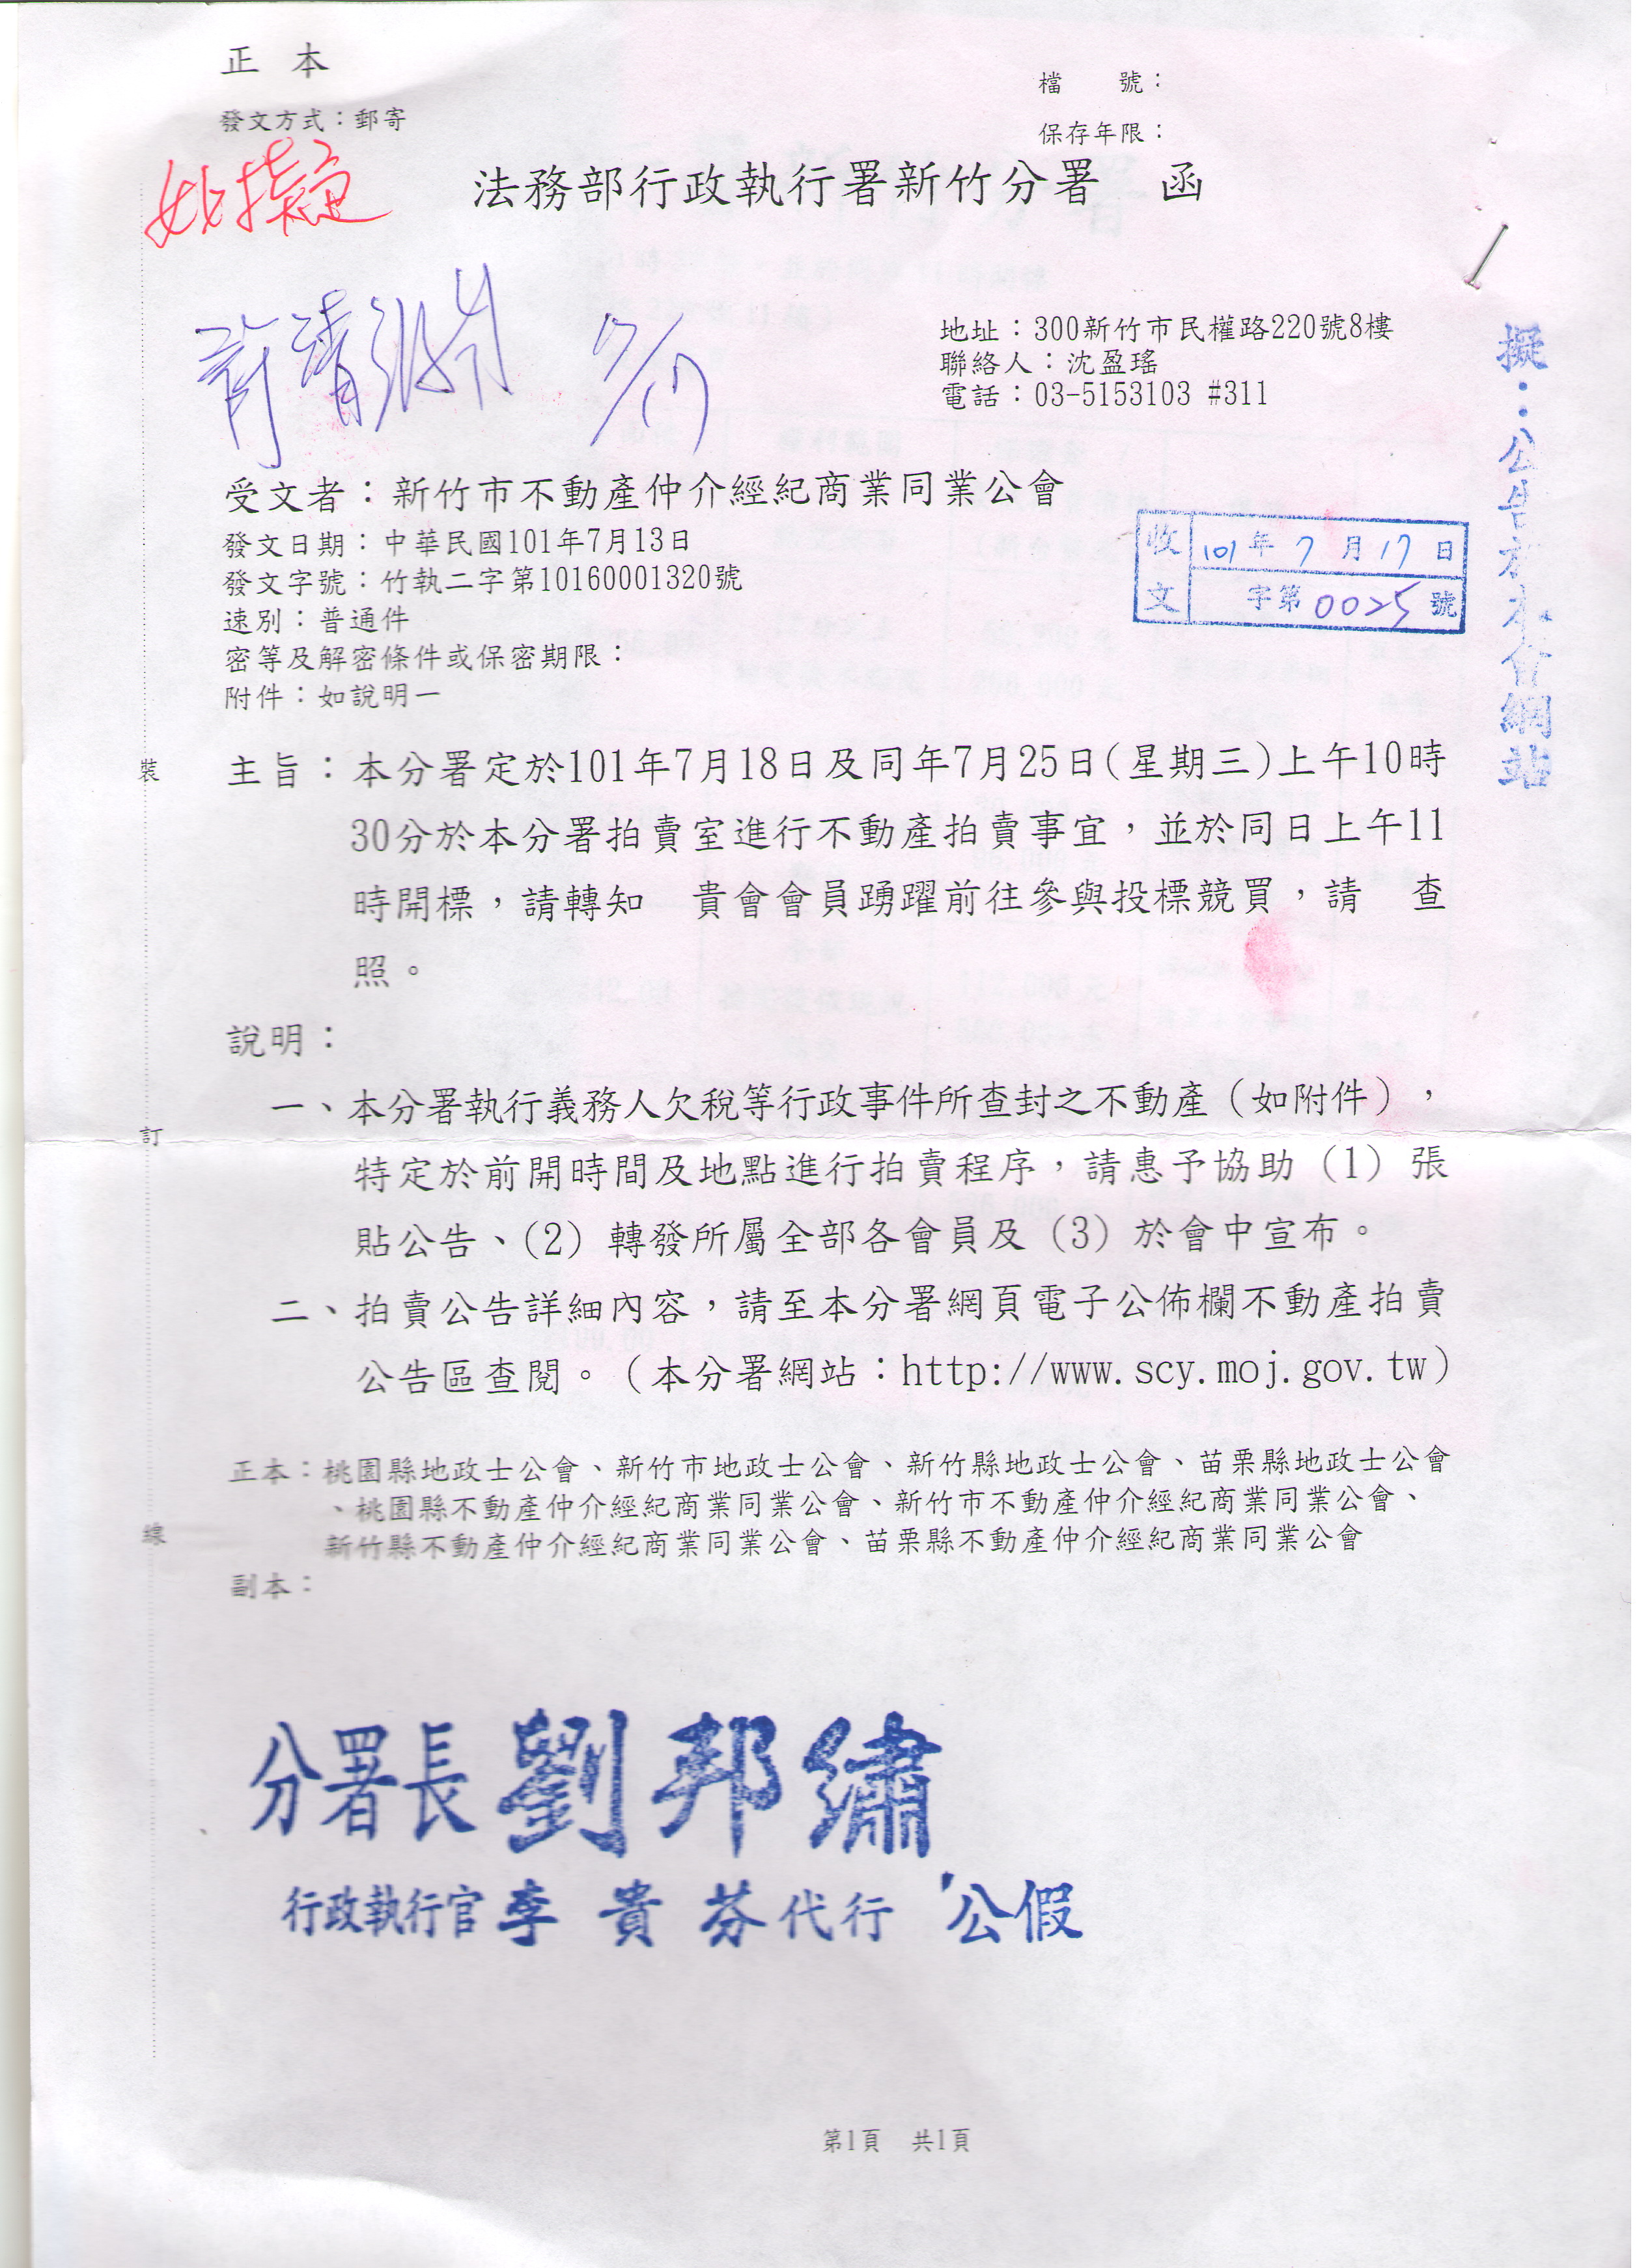 正 本
發文方式：郵寄
檔　　號：
保存年限：
如擬
法務部行政執行署新竹分署　函
7/17
地址：300新竹市民權路220號8樓
聯絡人：沈盈瑤
電話：03-5153103 #311
擬：公告於本會網站
受文者：新竹市不動產仲介經紀商業同業公會
發文日期：中華民國101年7月13日
發文字號：竹執二字第10160001320號
速別：普通件
密等及解密條件或保密期限：
附件：如說明一
收文 101年7月17日
字第0025號
主旨：本分署定於101年7月18日及同年7月25日(星期三)上午10時
30分於本分署拍賣室進行不動產拍賣事宜，並於同日上午11
時開標，請轉知　貴會會員踴躍前往參與投標競買，請　查
照。
說明：
一、本分署執行義務人欠稅等行政事件所查封之不動產（如附件），
特定於前開時間及地點進行拍賣程序，請惠予協助（1）張
貼公告、（2）轉發所屬全部各會員及（3）於會中宣布。
二、拍賣公告詳細內容，請至本分署網頁電子公佈欄不動產拍賣
公告區查閱。（本分署網站：http://www.scy.moj.gov.tw）
正本：桃園縣地政士公會、新竹市地政士公會、新竹縣地政士公會、苗栗縣地政士公會
、桃園縣不動產仲介經紀商業同業公會、新竹市不動產仲介經紀商業同業公會、
新竹縣不動產仲介經紀商業同業公會、苗栗縣不動產仲介經紀商業同業公會
副本：
裝
訂
線
分署長劉邦繡
行政執行官李貴芬代行 公假
第1頁　共1頁